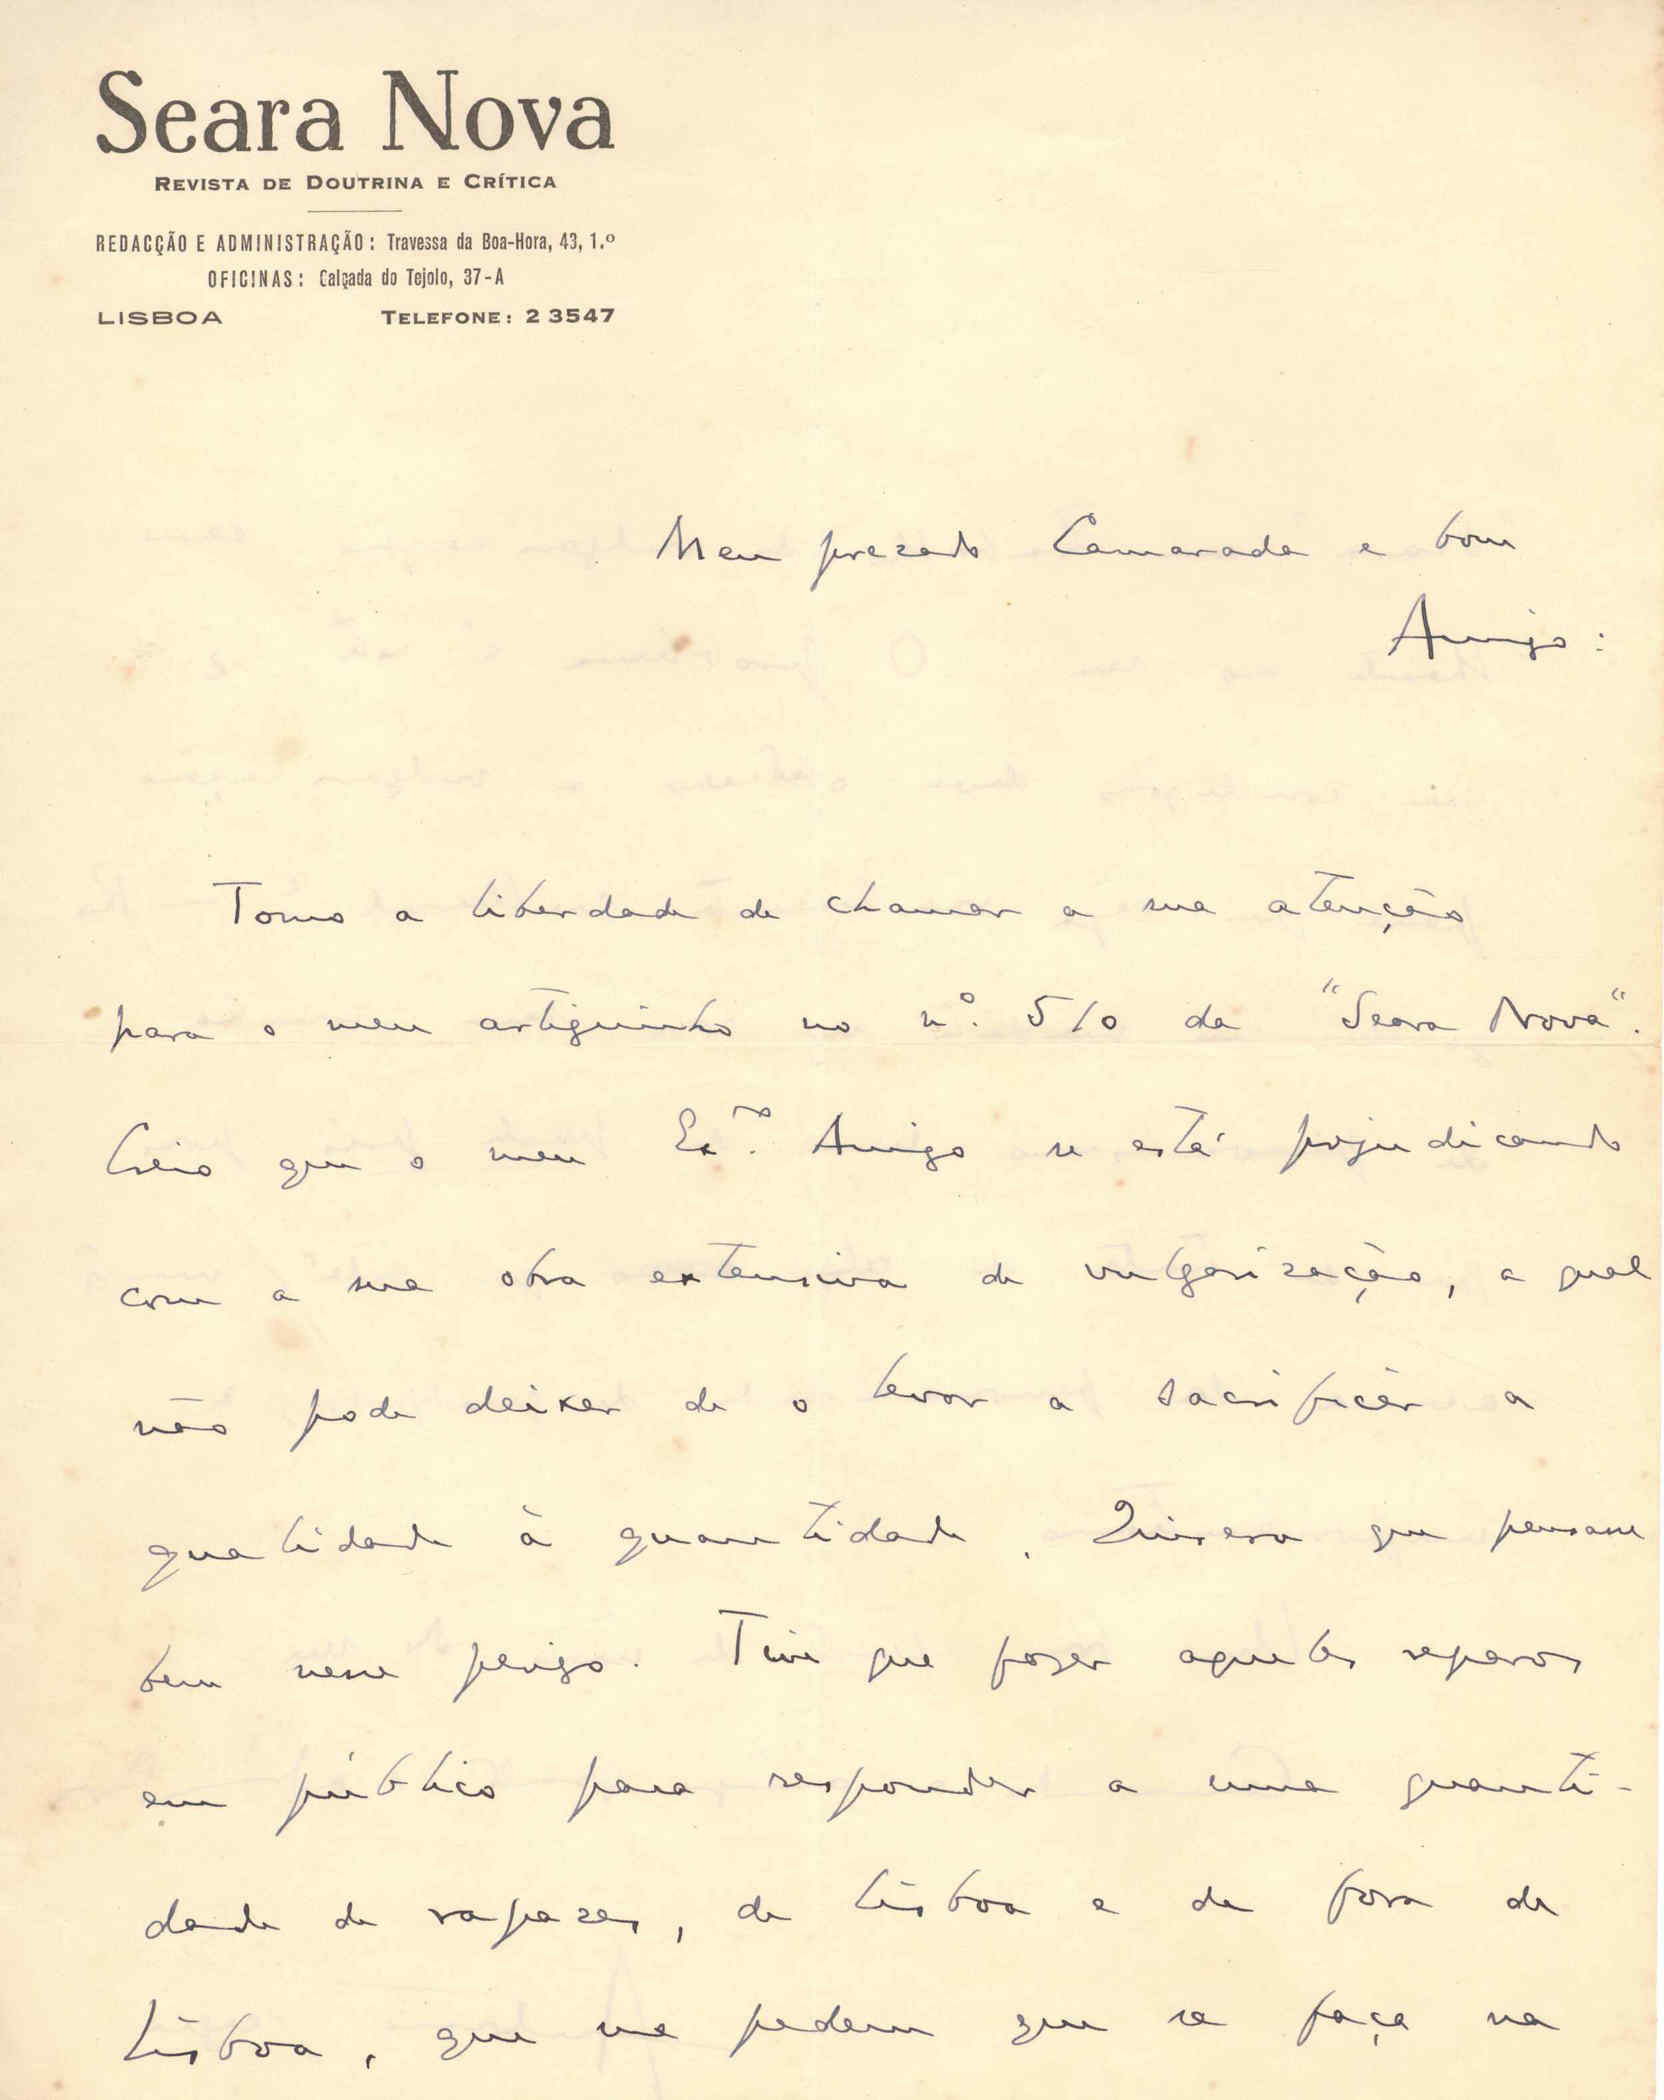 Seara Nova
REVISTA DE DOUTRINA E CRÍTICA
REDACÇÃO E ADMINISTRAÇÃO: Travessa da Boa-Hora, 43, 1.º
OFICINAS: Calçada do Tejolo, 37-A
LISBOA TELEFONE: 2 3547
Meu prezado Camarada e bom
Amigo:
Tomo a liberdade de chamar a sua atenção
para o meu artiguinho no nº. 510 da "Seara Nova".
Creio que o meu Exmo. Amigo se está prejudicando
com a sua obra extensiva de vulgarização, a qual
não pode deixar de o levar a sacrificar a
qualidade à quantidade. Quisera que pensasse
bem nesse perigo. Tive que fazer aqueles reparos
em público para responder a uma quanti-
dade de rapazes, de Lisboa e de fora de
Lisboa, que me pedem que se faça na